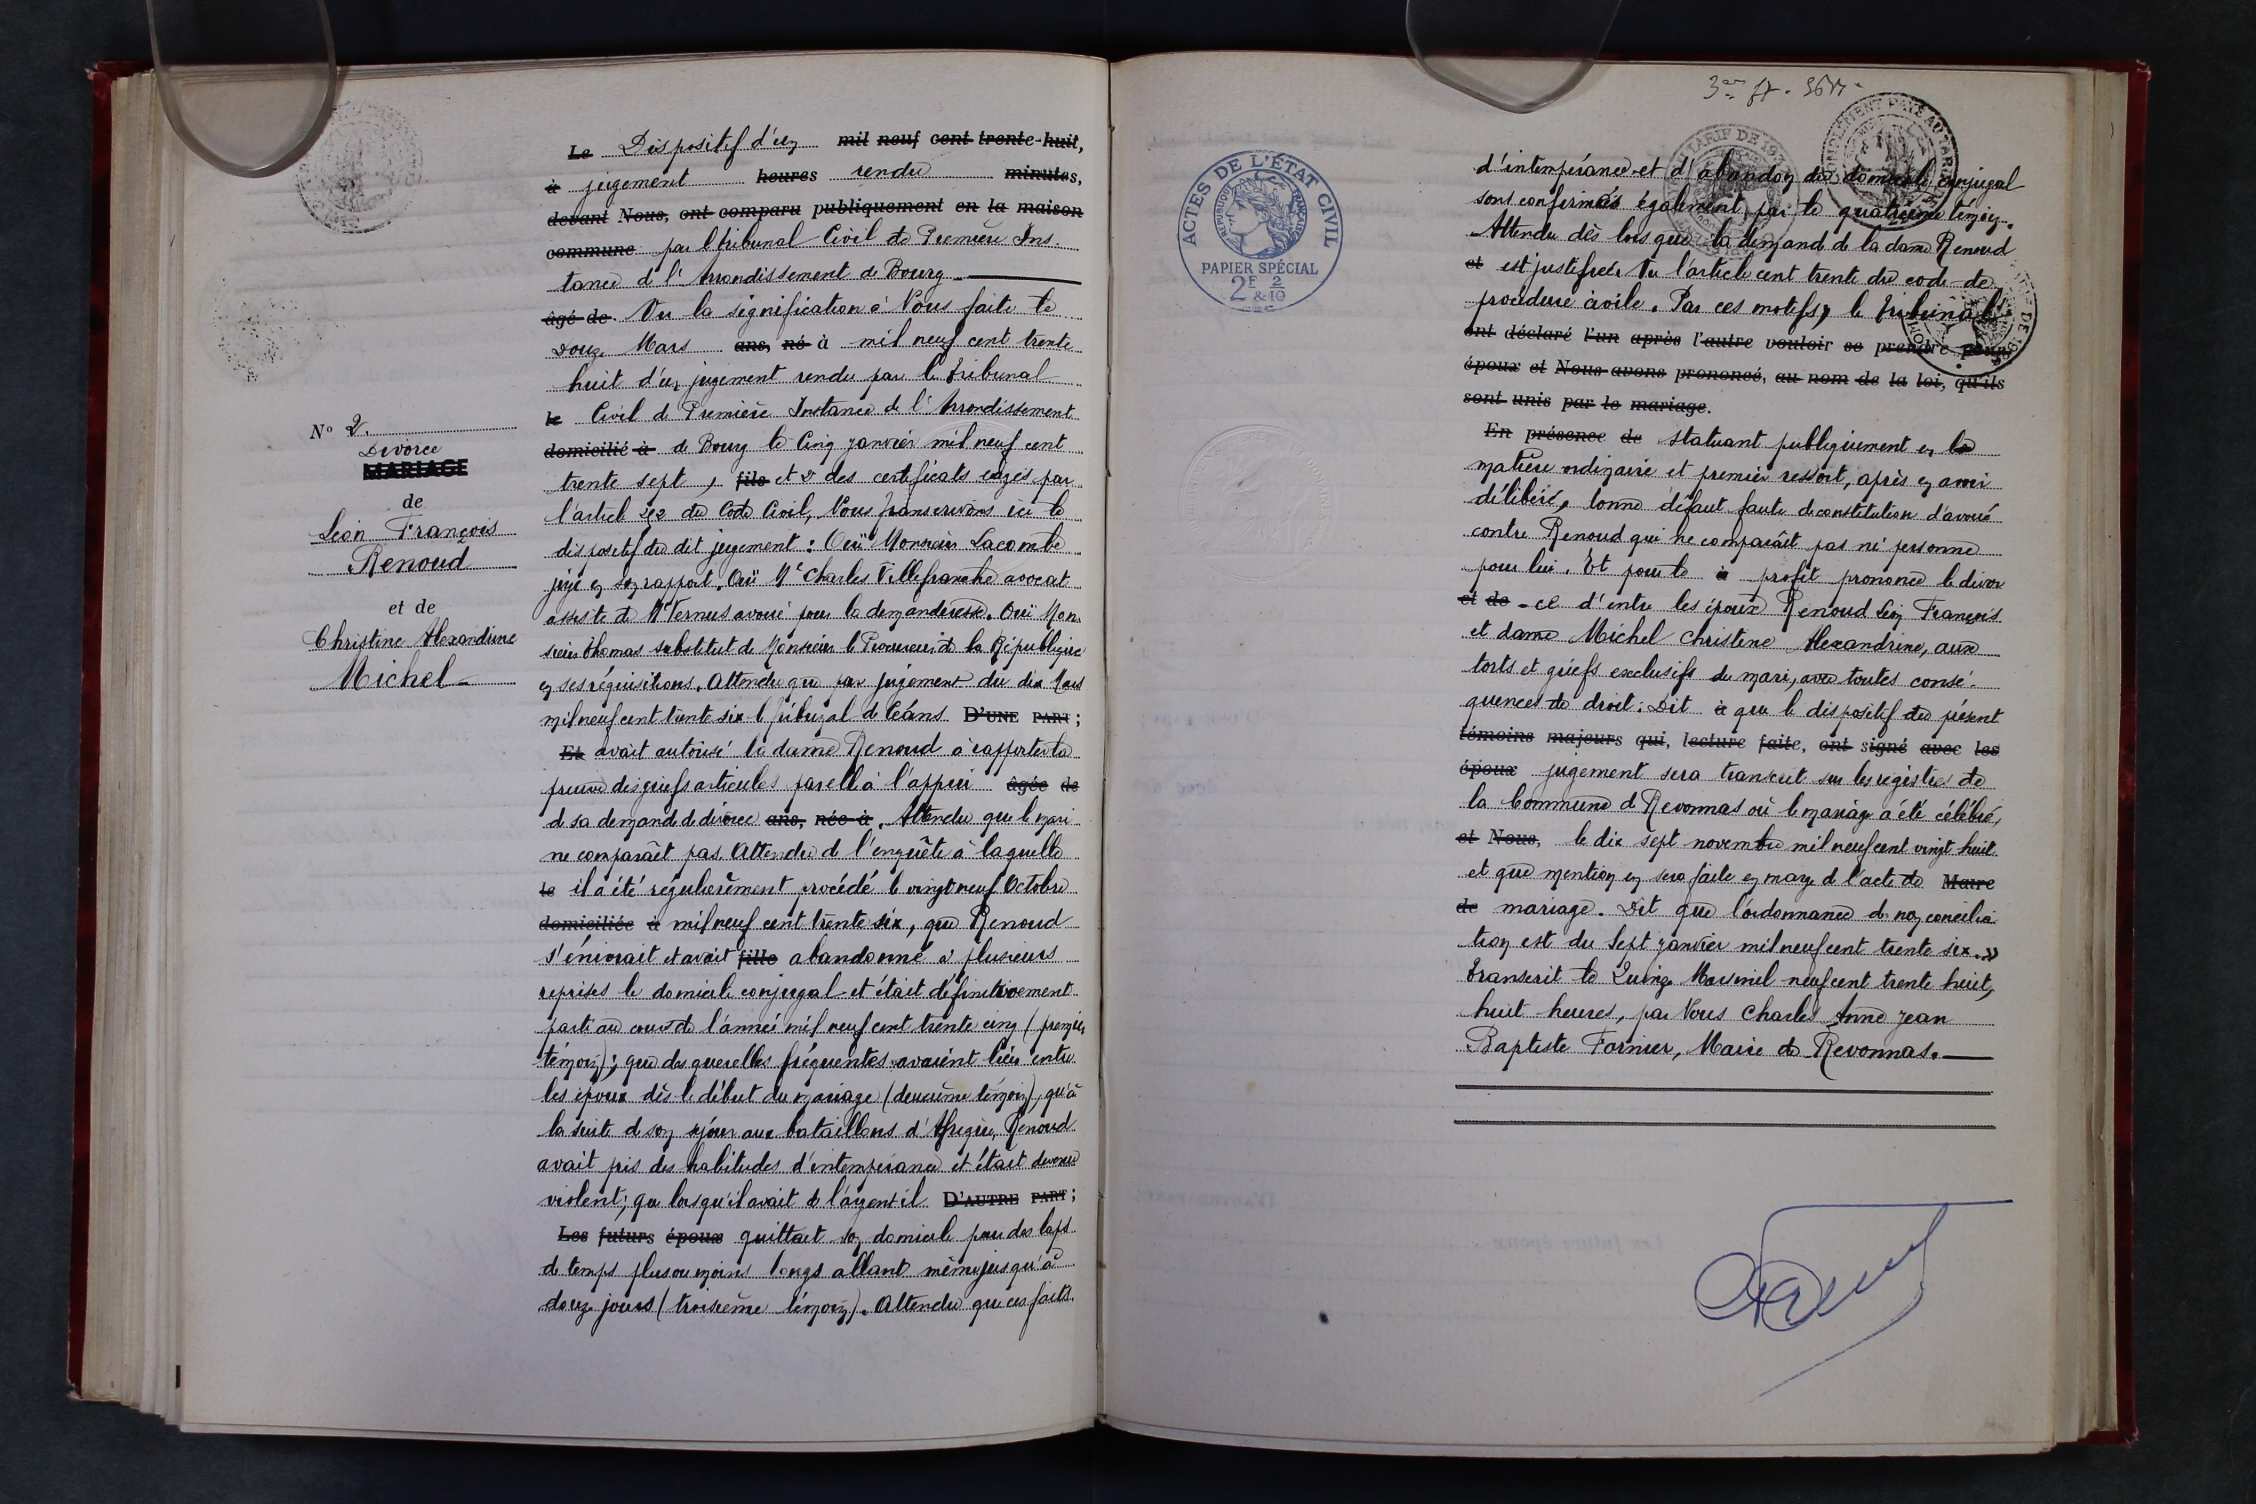 Le Dispositif d'un mil neuf cent trente-huit,
à jugement heures rendu minutes,
devant Nous, ont comparu publiquement en la maison
commune par l tribunal Civil de Première Ins
tance d l'Arrondissement de Bourg
âgé de Vu la signification à Nous faite le
douze Mars ans, né à mil neuf cent trente
huit d'un jugement rendu par le Tribunal
le Civil de Première Instance de l'Arrondissement
domicilié à de Bourg le Cinq janvier mil neuf cent
trente sept, fils et des certificats exigés par
l'articl 252 du Code Civil, Nous transcrivons ici le
dispositif du dit jugement : Ouï Monsieur Lacombe
juge en son rapport. Ouï Me Charles Villefranche avocat
assisté de Me Vernus avoué pour la demanderesse. Ouï Mon
sieur Thomas substitut de Monsieur le Procureur de la République
en ses réquisitions. Attendu que par jugement du dix Mars
mil neuf cent trente six l tribunal de Céans D'UNE PART ;
Et avait autorisé la dame Renoud à rapporter la
preuve des griefs articulés par ell à l'appui âgée de
d sa demand d divorce ans, née à. Attendu que l mari
ne comparaît pas. Attendu d l'enquête à laquelle
le il a été régulièrement procédé l vingt neuf Octobre
domiciliée à mil neuf cent trente six, que Renoud
s'énivrait et avait fille abandonné à plusieurs
reprises le domicile conjugal et était définitivement
parti au cours de l'année mil neuf cent trente cinq (premier
témoin) ; que des querelles fréquentes avaient lieu entre
les époux dès l début du mariage (deuxième témoin), qu'à
la suite d son séjour aux bataillons d'Afrique, Renoud
avait pris des habitudes d'intempérance et était devenu
violent ; que lorsqu'il avait de l'argent il D'AUTRE PART ;
Les futurs époux quittait son domicile pour des laps
de temps plus ou moins longs allant même jusqu'à
douze jours (troisième témoin). Attendu que ces faits
No 2.
Divorce
MARIAGE
de
Léon François
Renoud
et de
Christine Alexandrine
Michel
ACTES DE L'ÉTAT CIVIL
RÉPUBLIQUE FRANÇAISE
PAPIER SPÉCIAL
2F & 2/10
d'intempérance et d'abandon du domicile conjugal
sont confirmés également par le quatrième témoin.
Attendu dès lors que la demand de la dame Renoud
et est justifiée. Vu l'article cent trente du code de
procédure civile. Par ces motifs, le tribunal
ont déclaré l'un après l'autre vouloir se prendre pour
époux et Nous avons prononcé, au nom de la loi, qu'ils
sont unis par le mariage.
En présence de statuant publiquement en
matière ordinaire et premier ressort, après en avoir
délibéré, donne défaut faute de constitution d'avoué
contre Renoud qui ne comparaît pas ni personne
pour lui. Et pour le à profit prononce le divor
et de - ce d'entre les époux Renoud Léon François
et dame Michel Christine Alexandrine, aux
torts et griefs exclusifs du mari, avec toutes consé-
quences de droit. Dit à que le dispositif du présent
témoins majeurs qui, lecture faite, ont signé avec les
époux jugement sera transcrit sur les registres de
la Commune d Revonnas où le mariage a été célébré,
et Nous, le dix sept novembre mil neuf cent vingt huit
et que mention en sera faite en marge d l'acte de Maire
de mariage. Dit que l'ordonnance de non concilia
tion est du Sept janvier mil neuf cent trente six. »
Transcrit le Quinze Mars mil neuf cent trente huit,
huit heures, par Nous Charles Anne Jean
Baptiste Fornier, Maire de Revonnas.